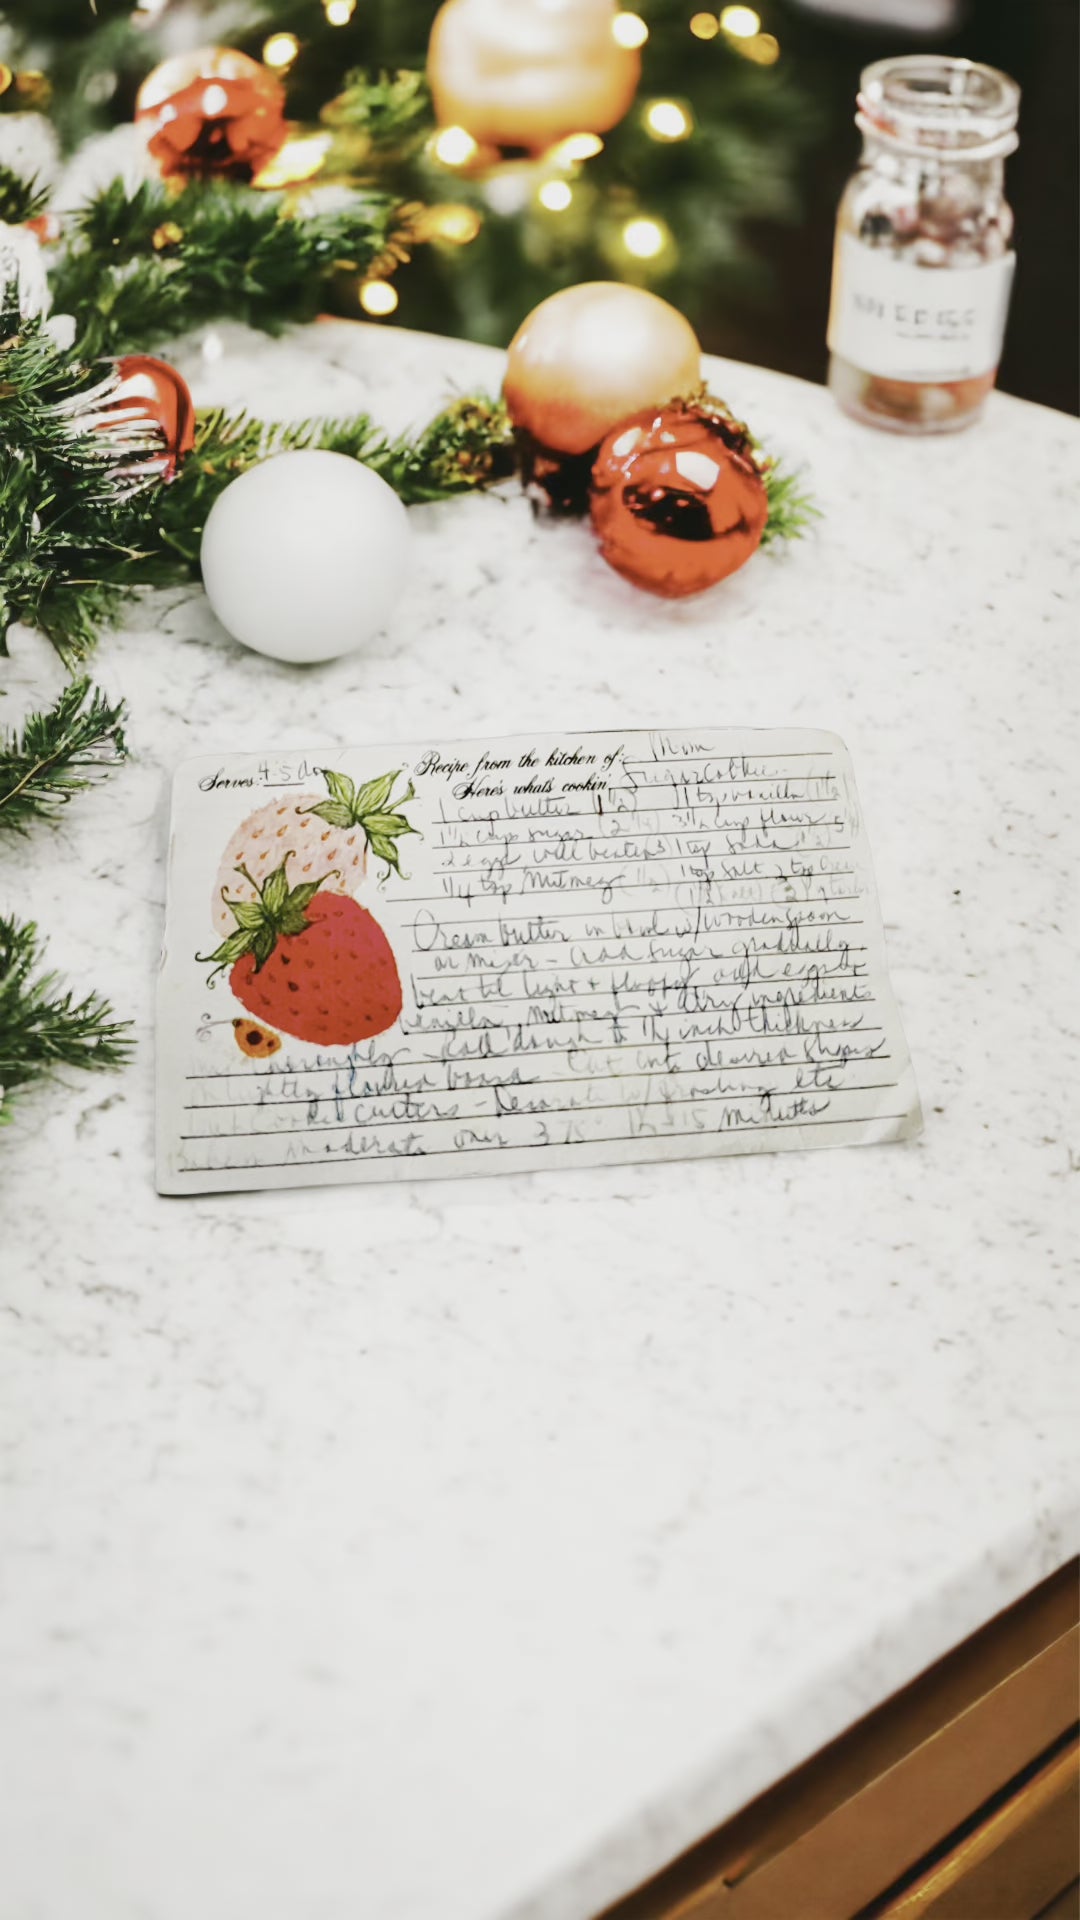 Serves: 4-5 doz
Recipe from the kitchen of: Mom
Here's what's cookin' Sugar Cookie
1 cup butter (1½) 1 tsp vanilla (1½
1½ cups sugar (2¼) 3½ cup flour 5¼
2 eggs well beaten 3 1 tsp soda
¼ tsp Nutmeg (½) 1 tsp salt 2 tsp Cream
Cream butter in bowl w/wooden spoon
or mixer - add sugar gradually.
beat til light + fluffy add eggs
vanilla, Nutmeg + dry ingredients
thoroughly - roll dough to ¼ inch thickness
lightly floured board - Cut into desired shapes
cookie cutters - Decorate w/frosting etc
moderate oven 375° 12-15 minutes